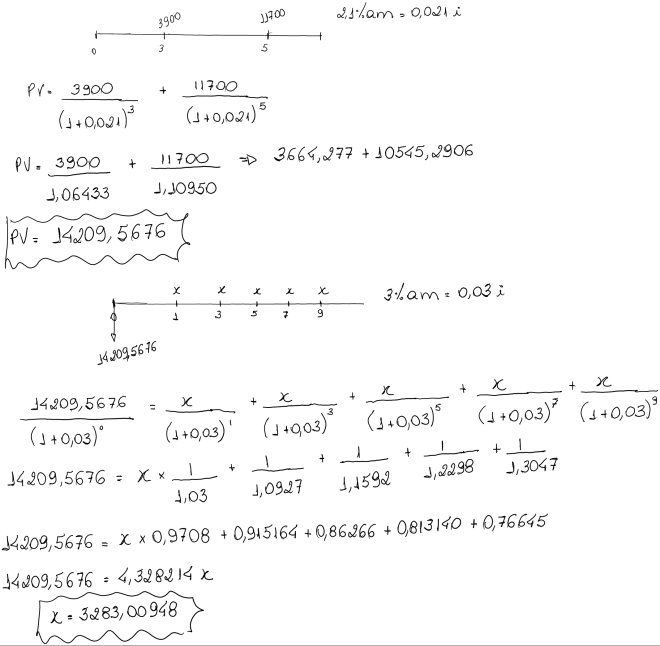 3900 11700 2,1%am = 0,021 i
0 3 5
PV = 3900/(1+0,021)^3 + 11700/(1+0,021)^5
PV = 3900/1,06433 + 11700/1,10950 => 3664,277 + 10545,2906
PV = 14209,5676
x x x x x 3%am = 0,03 i
0 1 3 5 7 9
14209,5676
14209,5676/(1+0,03)^0 = x/(1+0,03)^1 + x/(1+0,03)^3 + x/(1+0,03)^5 + x/(1+0,03)^7 + x/(1+0,03)^9
14209,5676 = x × 1/1,03 + 1/1,0927 + 1/1,1592 + 1/1,2298 + 1/1,3047
14209,5676 = x × 0,9708 + 0,915164 + 0,86266 + 0,813140 + 0,76645
14209,5676 = 4,328214 x
x = 3283,00948